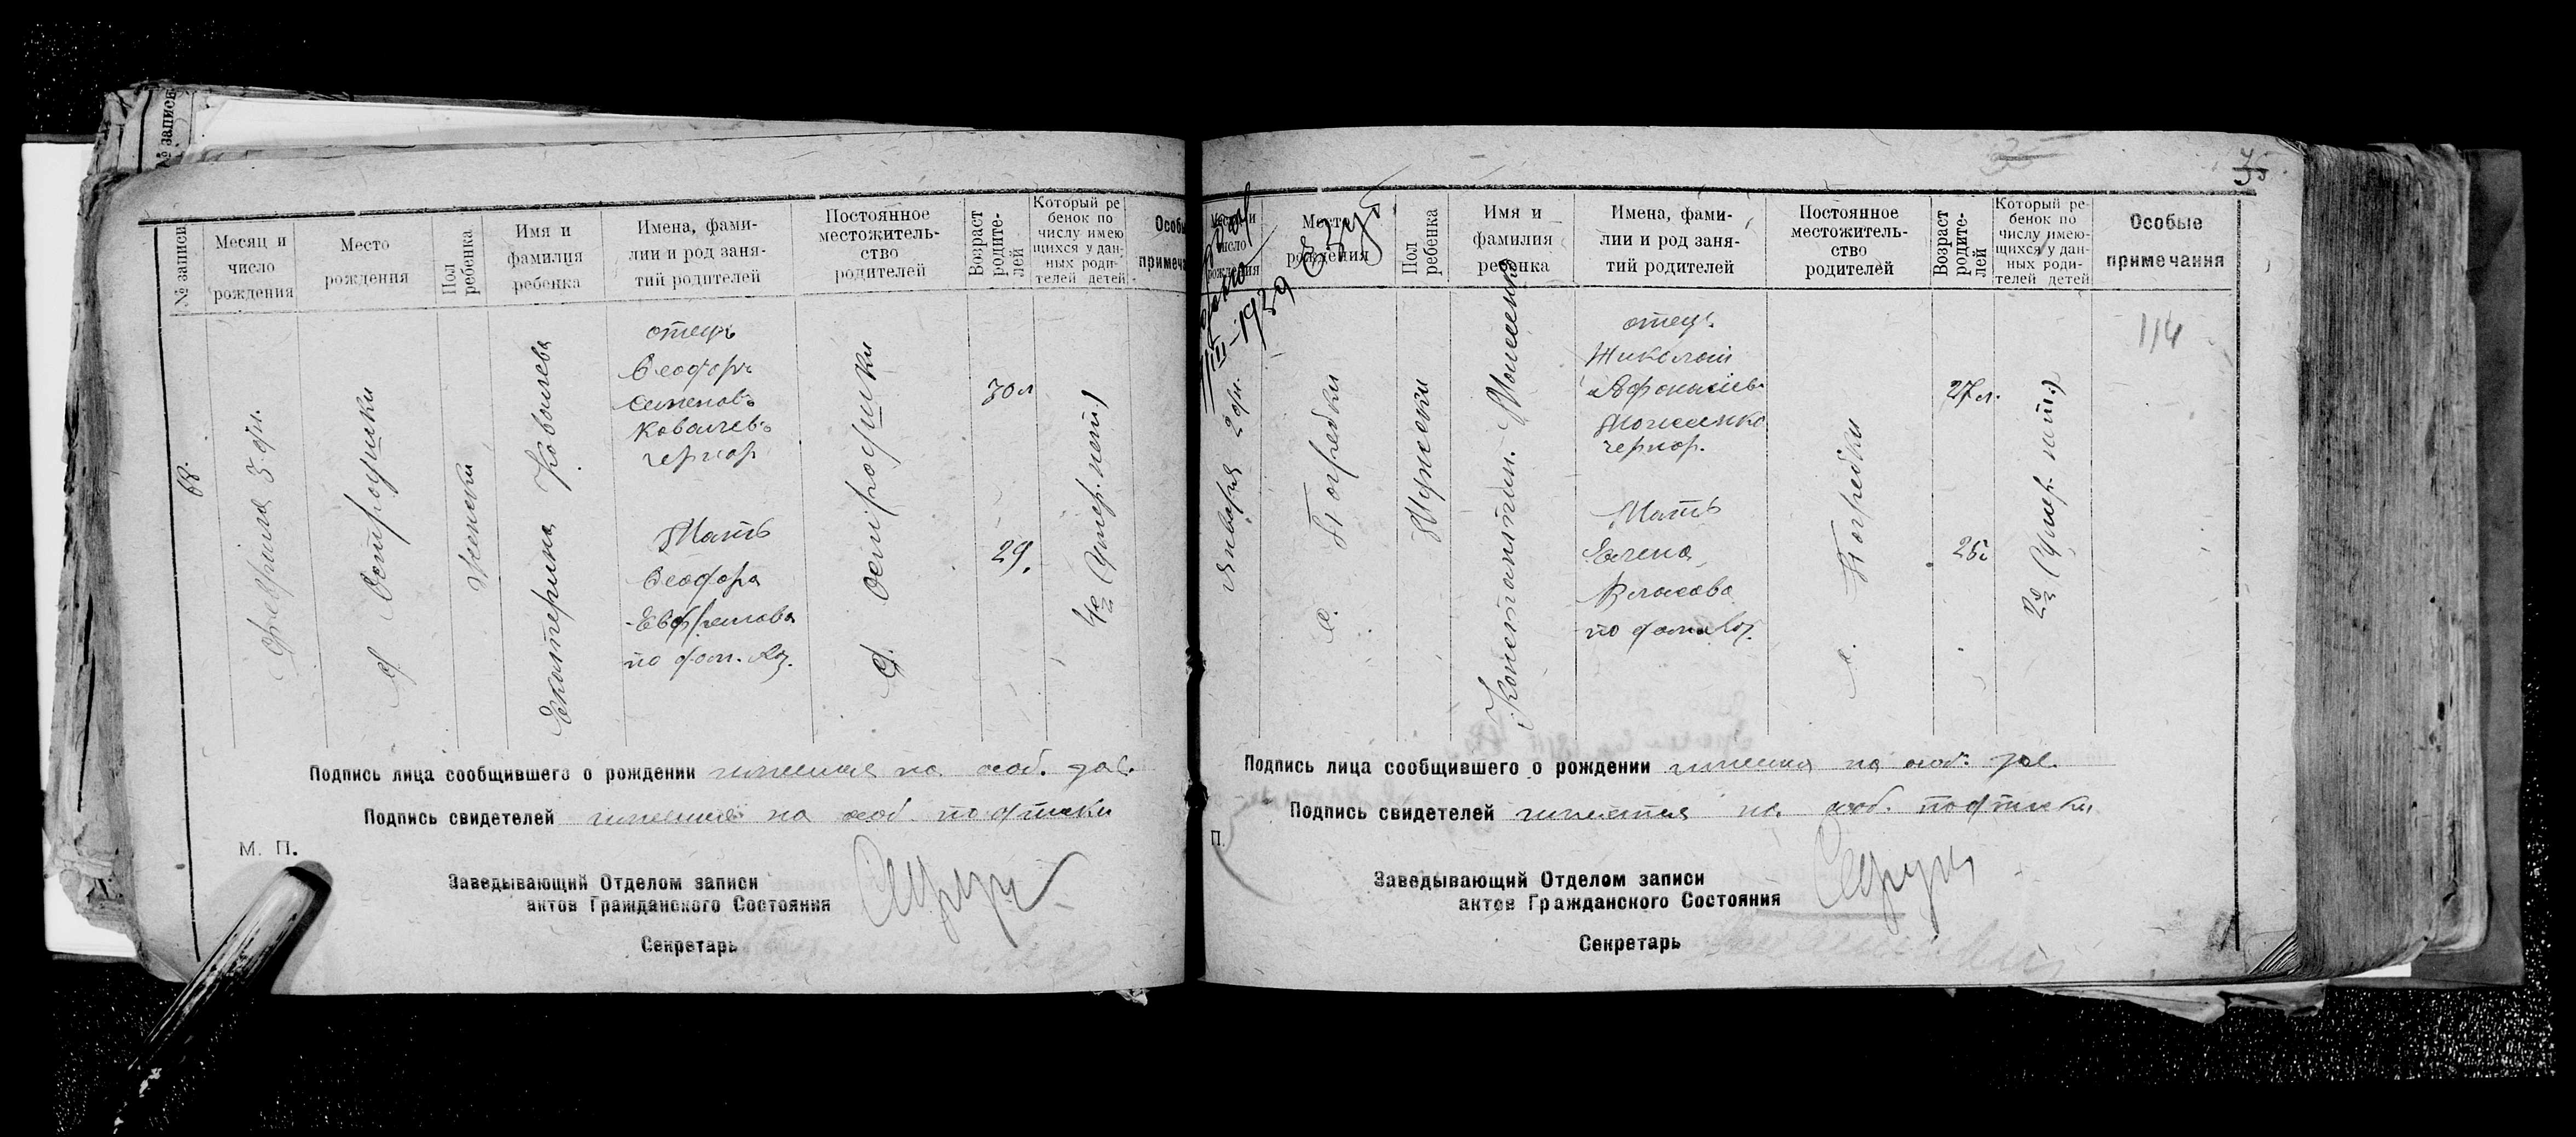 № запис
№ записи
Месяц и
число
рождения
Место
рождения
Пол
ребенка
Имя и
фамилия
ребенка
Имена, фами-
лии и род заня-
тий родителей
Постоянное
местожитель-
ство
родителей
Возраст
родите-
лей
Который ре
бенок по
числу имею
щихся у дан-
ных роди-
телей детей
Особы
примеча
68.
Февраля 3 дн.
д. Острошики
Женски
Екатерина Ковалева
отецъ
Феодоръ
Семеновъ
Ковалевъ
чернор
Мать
Феодора
Евфремова
по фам.
д. Острошики
30 л
29.
4й (умер. нет.)
Подпись лица сообщившего о рождении имеется на особ.
Подпись свидетелей имеется на особ. подписки
М. П.
Заведывающий Отделом записи
актов Гражданского Состояния
Секретарь
35
число
рождения
Место
рождения
Пол
ребенка
Имя и
фамилия
ребенка
Имена, фами-
лии и род заня-
тий родителей
Постоянное
местожитель-
ство
родителей
Возраст
родите-
лей
Который ре-
бенок по
числу имею-
щихся у дан-
ных роди-
телей детей
Особые
примечания
III-1939
Января 2 дн.
с. Погребки
Мужски
Константин.
отецъ
Николай
Афанасiев
чернор.
Мать
Елена
Власова
по фами
с. Погребки
27 л.
25
2й (умер. нит.)
114
Подпись лица сообщившего о рождении имеется на особ.
Подпись свидетелей имеется на особ. подписки
П.
Заведывающий Отделом записи
актов Гражданского Состояния
Секретарь